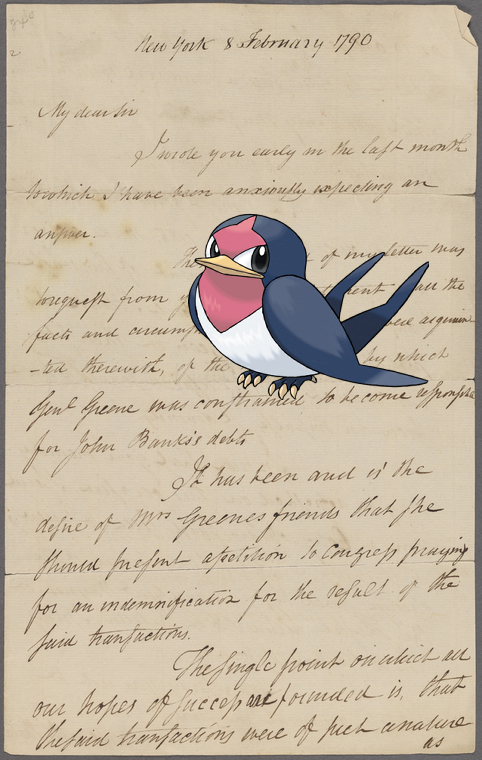 New York 8 February 1790
My dear Sir
I wrote you early in the last month
to which I have been anxiously expecting an
answer.
The of my letter was
to request from all the
facts and circum were acquain
-ted therewith, of the by which
Genl Greene was constrained to become responsible
for John Banks's debts
It has been and is the
desire of Mrs Greenes friends that she
should present a petition to Congress praying
for an indemnification for the result of the
said transactions.
The single point on which all
our hopes of success are founded is, that
the said transactions were of such a nature
as